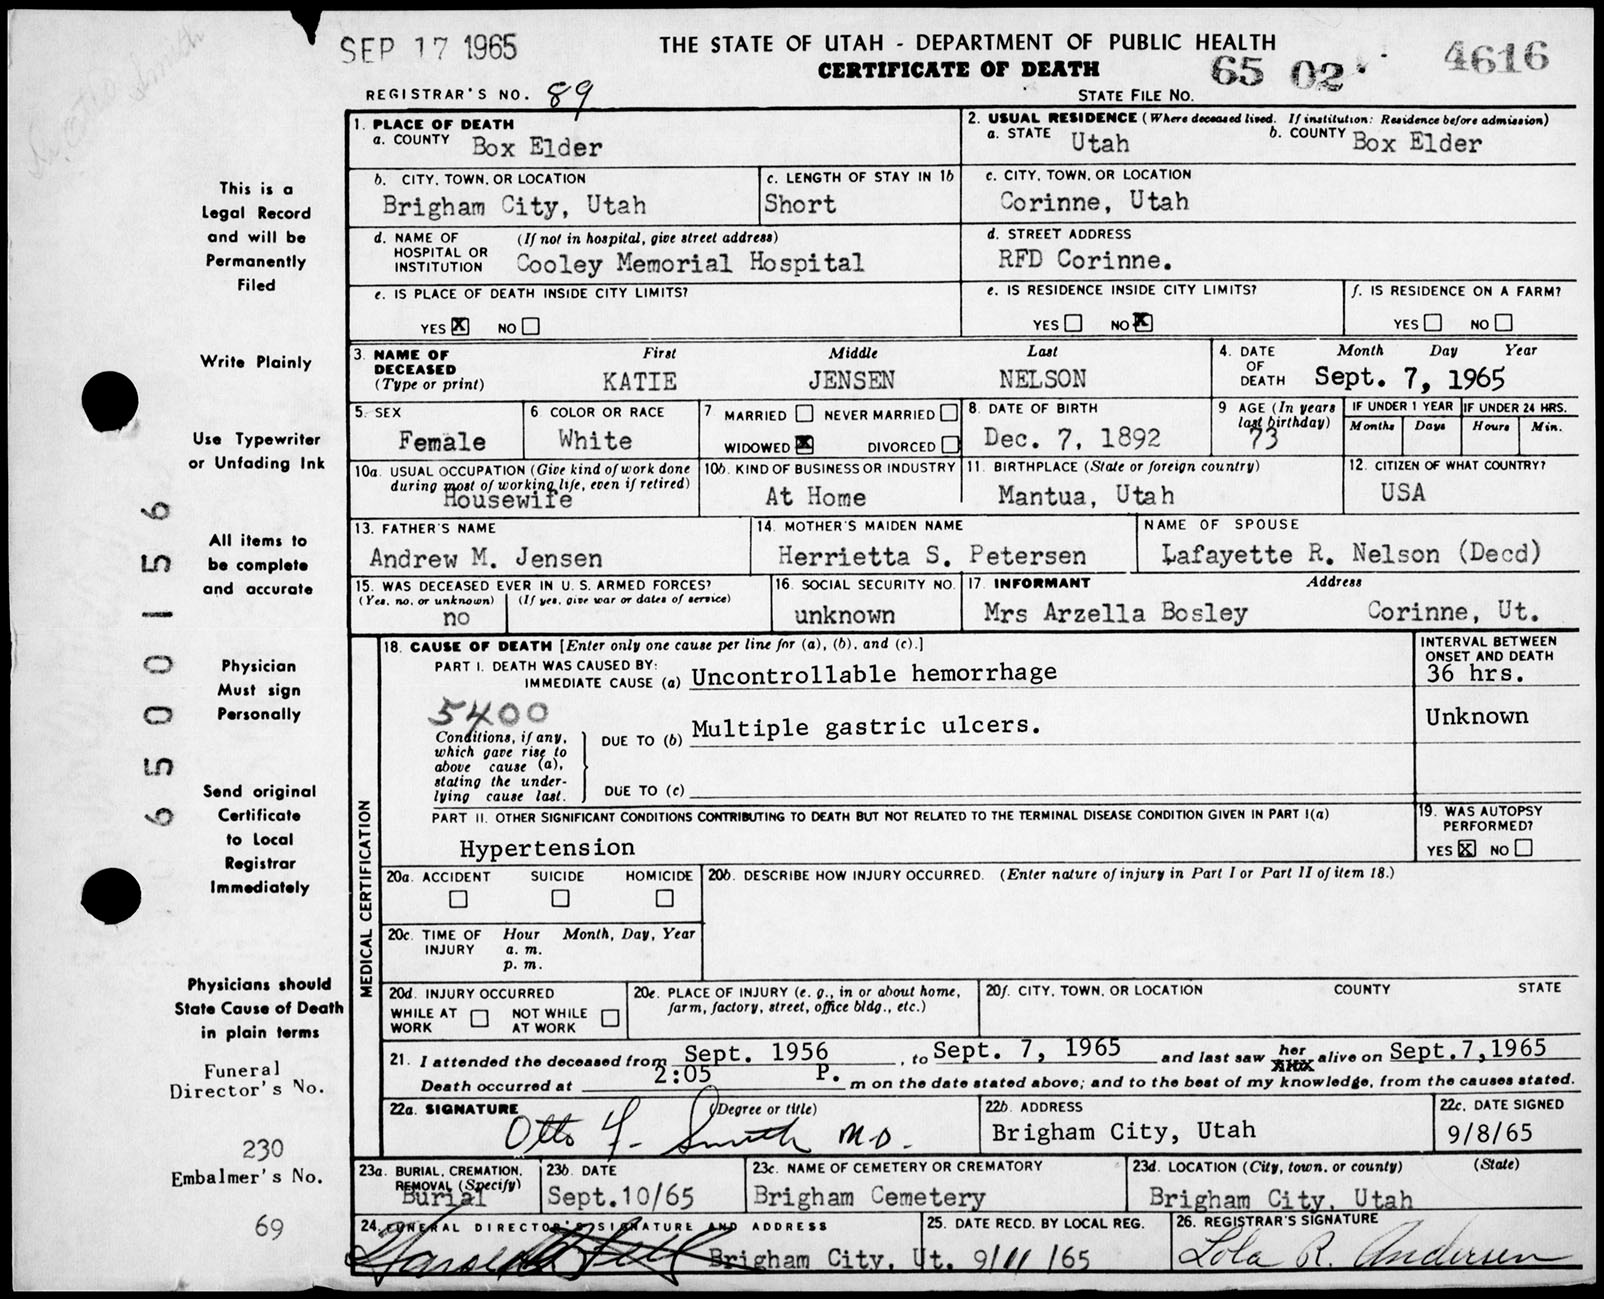 SEP 17 1965
THE STATE OF UTAH - DEPARTMENT OF PUBLIC HEALTH
CERTIFICATE OF DEATH
65 02
4616
REGISTRAR'S NO. 89
STATE FILE NO.
1. PLACE OF DEATH
a. COUNTY Box Elder
2. USUAL RESIDENCE (Where deceased lived. If institution: Residence before admission)
a. STATE Utah b. COUNTY Box Elder
b. CITY, TOWN, OR LOCATION
Brigham City, Utah
c. LENGTH OF STAY IN 1b
Short
c. CITY, TOWN, OR LOCATION
Corinne, Utah
d. NAME OF HOSPITAL OR INSTITUTION (If not in hospital, give street address)
Cooley Memorial Hospital
d. STREET ADDRESS
RFD Corinne.
e. IS PLACE OF DEATH INSIDE CITY LIMITS?
YES X NO
e. IS RESIDENCE INSIDE CITY LIMITS?
YES NO X
f. IS RESIDENCE ON A FARM?
YES NO
3. NAME OF DECEASED (Type or print)
First Middle Last
KATIE JENSEN NELSON
4. DATE OF DEATH
Month Day Year
Sept. 7, 1965
5. SEX
Female
6 COLOR OR RACE
White
7 MARRIED NEVER MARRIED
WIDOWED X DIVORCED
8. DATE OF BIRTH
Dec. 7, 1892
9 AGE (In years last birthday)
73
IF UNDER 1 YEAR
Months Days
IF UNDER 24 HRS.
Hours Min.
10a. USUAL OCCUPATION (Give kind of work done during most of working life, even if retired)
Housewife
10b. KIND OF BUSINESS OR INDUSTRY
At Home
11. BIRTHPLACE (State or foreign country)
Mantua, Utah
12. CITIZEN OF WHAT COUNTRY?
USA
13. FATHER'S NAME
Andrew M. Jensen
14. MOTHER'S MAIDEN NAME
Herrietta S. Petersen
NAME OF SPOUSE
Lafayette R. Nelson (Decd)
15. WAS DECEASED EVER IN U.S. ARMED FORCES?
(Yes, no, or unknown) (If yes, give war or dates of service)
no
16. SOCIAL SECURITY NO.
unknown
17. INFORMANT Address
Mrs Arzella Bosley Corinne, Ut.
MEDICAL CERTIFICATION
18. CAUSE OF DEATH [Enter only one cause per line for (a), (b), and (c).]
PART I. DEATH WAS CAUSED BY:
IMMEDIATE CAUSE (a) Uncontrollable hemorrhage
INTERVAL BETWEEN ONSET AND DEATH
36 hrs.
5400
Conditions, if any, which gave rise to above cause (a), stating the underlying cause last.
DUE TO (b) Multiple gastric ulcers.
Unknown
DUE TO (c)
PART II. OTHER SIGNIFICANT CONDITIONS CONTRIBUTING TO DEATH BUT NOT RELATED TO THE TERMINAL DISEASE CONDITION GIVEN IN PART I(a)
Hypertension
19. WAS AUTOPSY PERFORMED?
YES X NO
20a. ACCIDENT SUICIDE HOMICIDE
20b. DESCRIBE HOW INJURY OCCURRED. (Enter nature of injury in Part I or Part II of item 18.)
20c. TIME OF INJURY Hour Month, Day, Year
a. m.
p. m.
20d. INJURY OCCURRED
WHILE AT WORK NOT WHILE AT WORK
20e. PLACE OF INJURY (e. g., in or about home, farm, factory, street, office bldg., etc.)
20f. CITY, TOWN, OR LOCATION COUNTY STATE
21. I attended the deceased from Sept. 1956, to Sept. 7, 1965 and last saw her alive on Sept.7,1965
Death occurred at 2:05 P. m on the date stated above; and to the best of my knowledge, from the causes stated.
22a. SIGNATURE (Degree or title)
Otto F. Smith M.D.
22b. ADDRESS
Brigham City, Utah
22c. DATE SIGNED
9/8/65
23a. BURIAL, CREMATION, REMOVAL (Specify)
Burial
23b. DATE
Sept.10/65
23c. NAME OF CEMETERY OR CREMATORY
Brigham Cemetery
23d. LOCATION (City, town, or county) (State)
Brigham City, Utah
24. FUNERAL DIRECTOR'S SIGNATURE AND ADDRESS
Brigham City, Ut.
25. DATE RECD. BY LOCAL REG.
9/11/65
26. REGISTRAR'S SIGNATURE
Lola R. Andersen
This is a
Legal Record
and will be
Permanently
Filed
Write Plainly
Use Typewriter
or Unfading Ink
All items to
be complete
and accurate
Physician
Must sign
Personally
Send original
Certificate
to Local
Registrar
Immediately
Physicians should
State Cause of Death
in plain terms
Funeral
Director's No.
230
Embalmer's No.
69
6500156